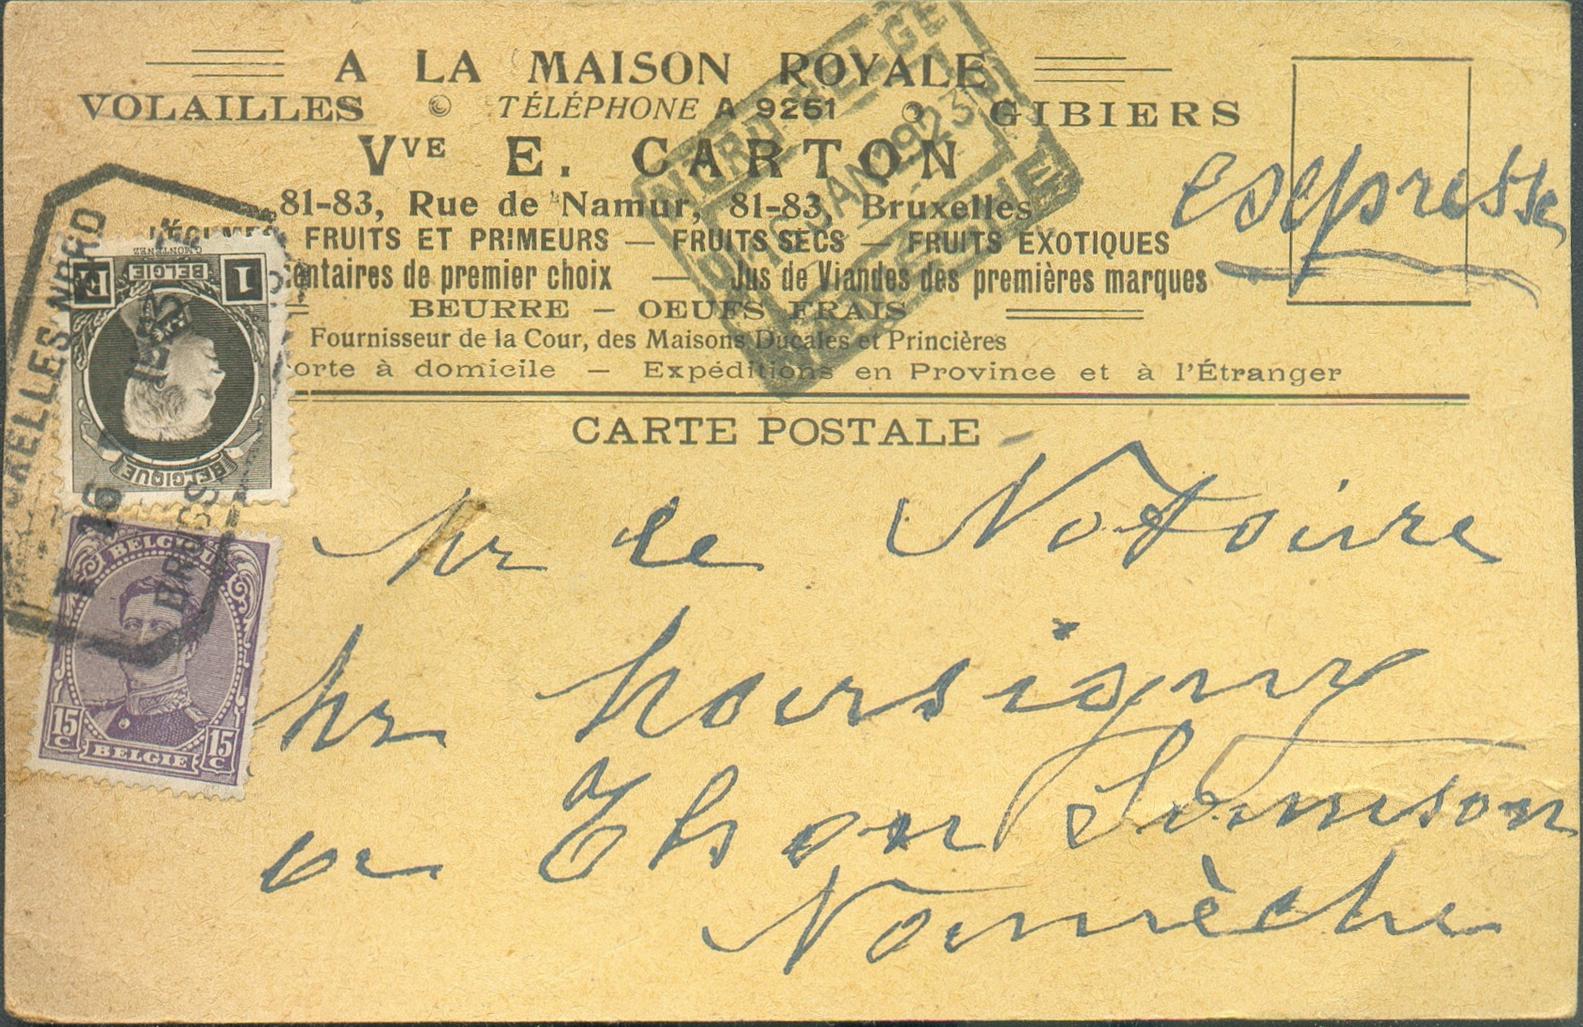 A LA MAISON ROYALE
VOLAILLES TÉLÉPHONE A 9251 GIBIERS
Vve E. CARTON
81-83, Rue de Namur, 81-83, Bruxelles
LÉGUMES FRUITS ET PRIMEURS — FRUITS SECS — FRUITS EXOTIQUES
entaires de premier choix — Jus de Viandes des premières marques
BEURRE — OEUFS FRAIS
Fournisseur de la Cour, des Maisons Ducales et Princières
orte à domicile — Expéditions en Province et à l'Étranger
CARTE POSTALE
expresse
NORD-BELGE
JANV 1923
1 F
BELGIE
BELGIQUE
XELLES-NORD
16
BRUSS
BELGI
15 C BELGIE 15 C
Mr le Notaire
Mr Moursigny
a Thon Samson
Namèche